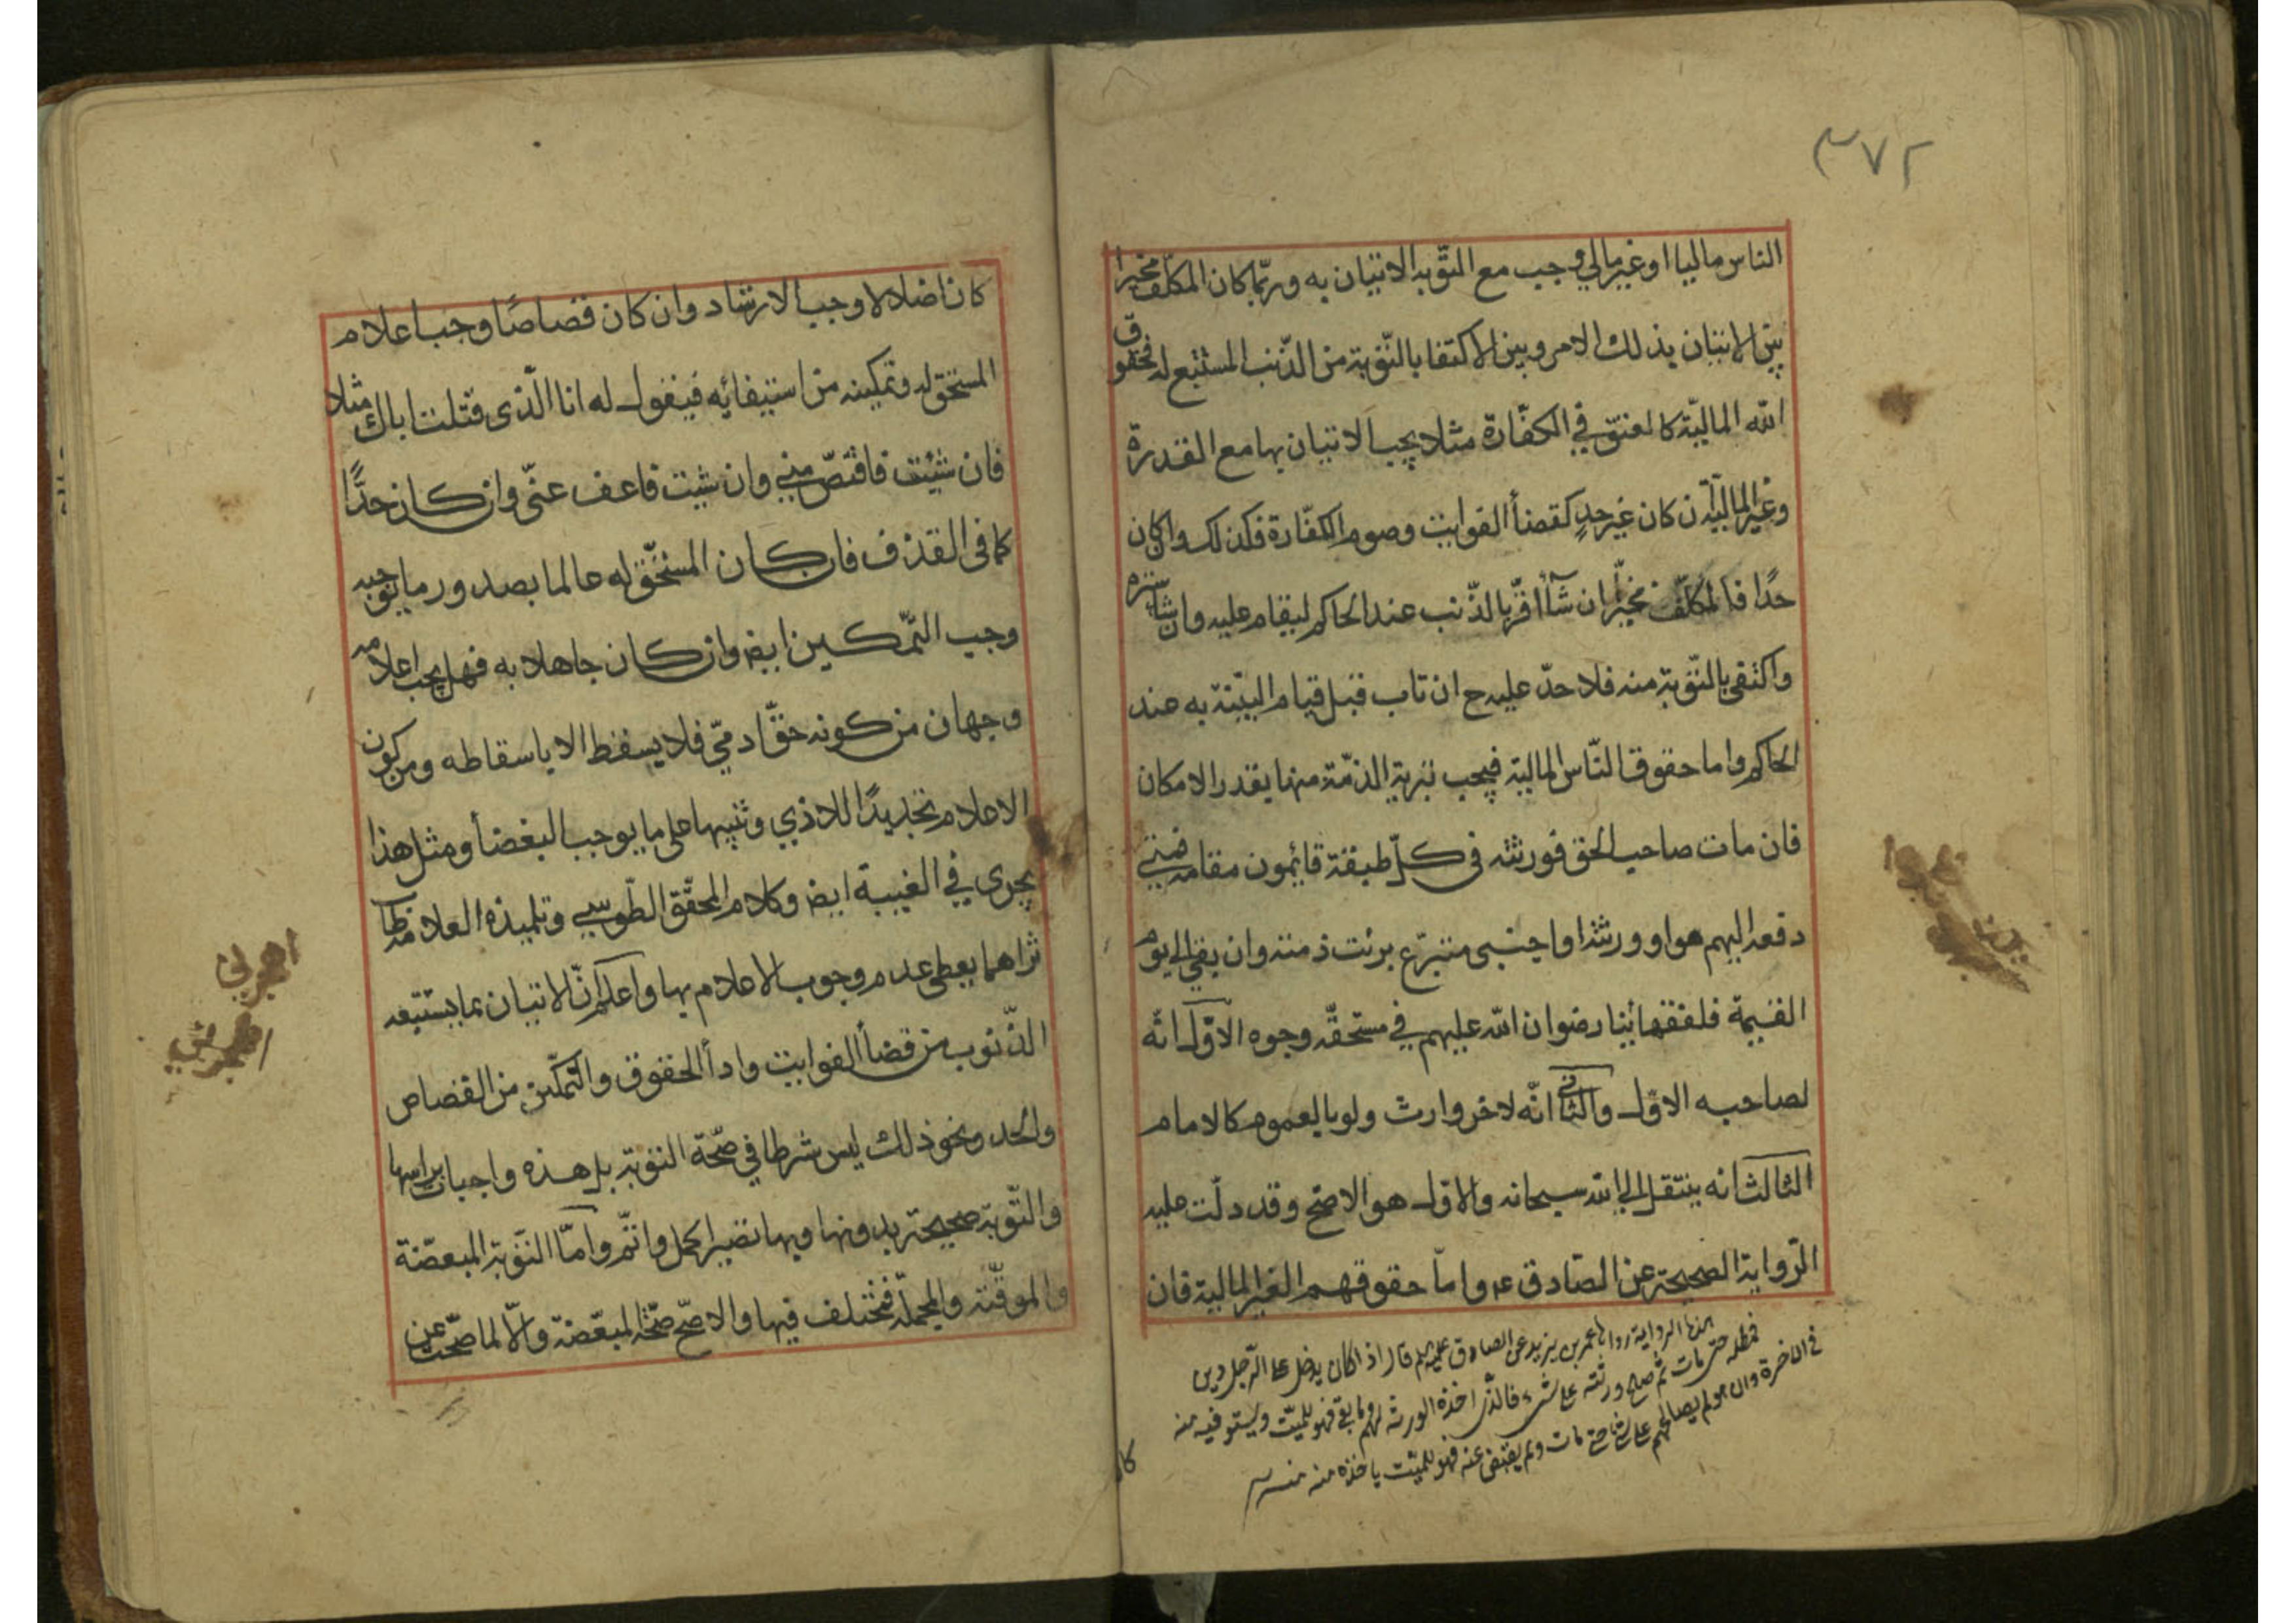 ٣٧٢
الناس ماليا او غير مالي وجب مع التوبه الاتيان به وربّما كان المكلّف مخيرا
بين الاتيان بذلك الامر وبين الاكتفا بالتّوبة من الذّنب المستتبع له فحقوق
الله الماليّة كالعتق في الكفّارة مثلا يجب الاتيان بها مع القدرة
وغير الماليّة ان كان غير حدٍ كقضأ الفوايت وصوم الكفّارة فكذلك وان كان
حدًا فالمكلّف مخيّر ان شآء اقرّ بالذّنب عند الحاكم ليقام عليه وان شآء ستره
واكتفى بالتّوبة منه فلا حدّ عليه ح ان تاب قبل قيام البيّنة به عند
الحاكم واما حقوق النّاس المالية فيجب تبرية الذمّة منها بقدر الامكان
فان مات صاحب الحق فورثته في كلّ طبقة قايمون مقامه فمتى
دفعه اليهم هو او ورثته او اجنبى متبرّع برئت ذمته وان بقي الى يوم
القيمة فلفقهائنا رضوان الله عليهم في مستحقّه وجوه الاوّل انّه
لصاحبه الاوّل والثاني انّه لاخر وارث ولو بالعموم كالامام
الثالث انه ينتقل الى الله سبحانه والاوّل هو الاصّح وقد دلّت عليه
الرّواية الصحيحة عن الصّادق ع واما حقوقهم الغير المالية فان
هذه الرواية رواها عمر بن يزيد عن الصادق عليه السلام قال اذا كان يدخل على الرّجل دين
فمطله حتى مات ثم صالح ورثته على شيء فالذّى اخذه الورثه لهم وما بقى فهو للميّت ويستوفيه منه
فى الاخرة وان هو لم يصالحهم على شئ حتى مات ولم يقتض عنه فهو للميّت ياخذه منه منه
كا
كان اضلالا وجب الارشاد وان كان قصاصًا وجب اعلام
المستحق له وتمكينه من استيفائه فيقول له انا الّذى قتلت اباك مثلا
فان شئت فاقتصّ منى وان شيت فاعف عنّى وان كان حدًّا
كما فى القذف فان كان المستحّق له عالما بصدور ما يوجبه
وجب التّمكين ايض وان كان جاهلا به فهل يجب اعلامه
وجهان من كونه حقّ ادميّ فلا يسقط الا باسقاطه ومن كون
الاعلام تجديدًا للاذي وتنبيها على ما يوجب البغضأ ومثل هذا
يجرى في الغيبة ايض وكلام المحقّق الطّوسي وتلميذه العلامة طاب
ثراهما يعطى عدم وجوب الاعلام بها واعلم انّ الاتيان بما يستتبعه
الذّنوب من قضأ الفوايت وادأ الحقوق والتّمكين من القصاص
والحد ونحو ذلك ليس شرطا في صحّة التوبة بل هذه واجبات براسها
والتّوبة صحيحة بدونها وبها تصير اكمل واتّم وامّا التّوبة المبعّضة
والموقّتة والمجملة فمختلف فيها والاصّح صحّة المبعّضة والّا لما صحّت عن